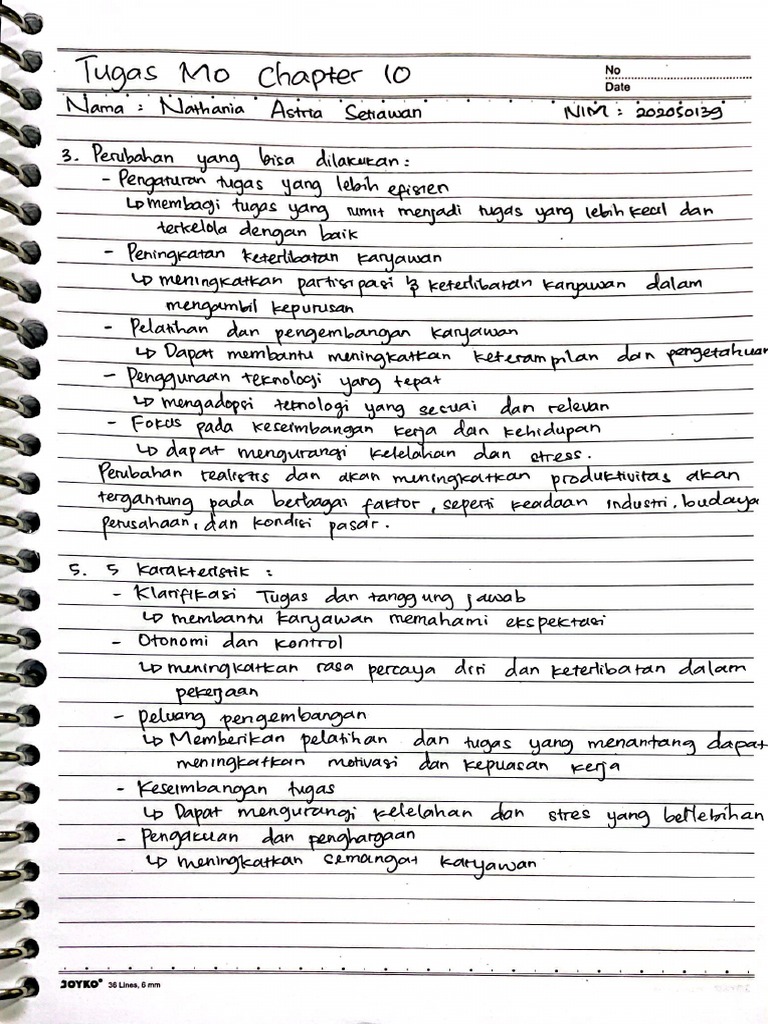 Tugas MO Chapter 10
No
Date
Nama : Nathania Astria Setiawan NIM : 202050139
3. Perubahan yang bisa dilakukan :
- Pengaturan tugas yang lebih efisien
↳ membagi tugas yang rumit menjadi tugas yang lebih kecil dan
terkelola dengan baik
- Peningkatan keterlibatan karyawan
↳ meningkatkan partisipasi & keterlibatan karyawan dalam
mengambil keputusan
- Pelatihan dan pengembangan karyawan
↳ Dapat membantu meningkatkan keterampilan dan pengetahuan
- Penggunaan teknologi yang tepat
↳ mengadopsi teknologi yang sesuai dan relevan
- Fokus pada keseimbangan kerja dan kehidupan
↳ dapat mengurangi kelelahan dan stress.
Perubahan realistis dan akan meningkatkan produktivitas akan
tergantung pada berbagai faktor, seperti keadaan industri, budaya
perusahaan, dan kondisi pasar.
5. 5 karakteristik :
- Klarifikasi Tugas dan tanggung jawab
↳ membantu karyawan memahami ekspektasi
- Otonomi dan kontrol
↳ meningkatkan rasa percaya diri dan keterlibatan dalam
pekerjaan
- peluang pengembangan
↳ Memberikan pelatihan dan tugas yang menantang dapat
meningkatkan motivasi dan kepuasan kerja
- Keseimbangan tugas
↳ Dapat mengurangi kelelahan dan stres yang berlebihan
- Pengakuan dan penghargaan
↳ meningkatkan semangat karyawan
JOYKO 36 Lines, 6 mm